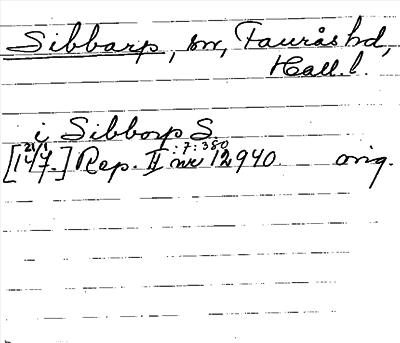 Sibbarp, sn, Faurås hd,
Hall. l.
i Sibborp S.
[21/1 147.] Rep. II :7:380 nr 12940 orig.